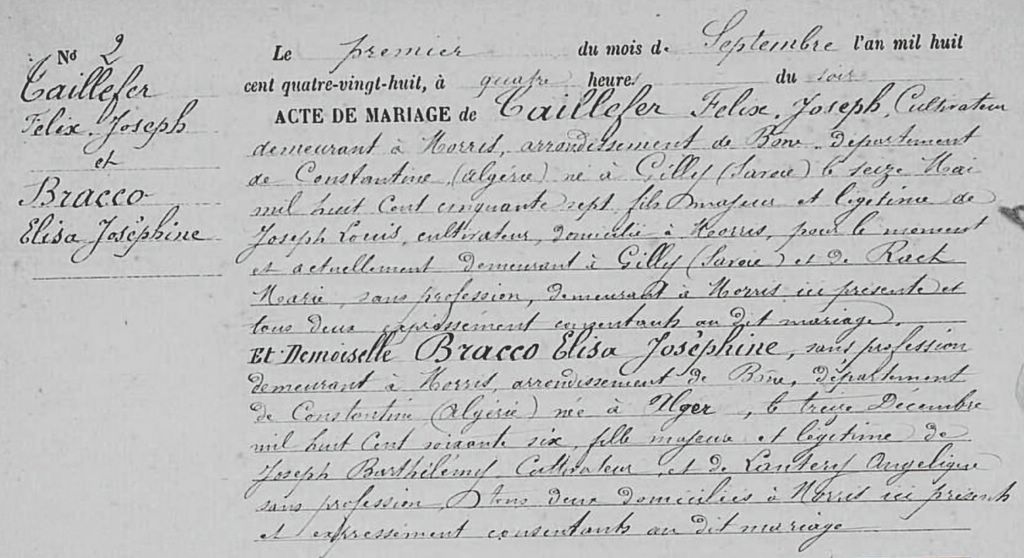 N° 2
Taillefer
Félix. Joseph
et
Bracco
Elisa Joséphine
Le premier du mois de Septembre l'an mil huit
cent quatre-vingt-huit, à quatre heures du soir
ACTE DE MARIAGE de Taillefer Felix. Joseph, Cultivateur
demeurant à Morris, arrondissement de Bône, département
de Constantine, (Algérie) né à Gilly (Savoie) le seize Mai
mil huit Cent cinquante sept, fils majeur et légitime de
Joseph Louis, cultivateur, domicilié à Morris, pour le moment
et actuellement demeurant à Gilly (Savoie) et de Rach
Marie, sans profession, demeurant à Morris ici présente et
tous deux expressément consentants au dit mariage.
Et Demoiselle Bracco Elisa Joséphine, sans profession
demeurant à Morris, arrondissement de Bône, département
de Constantine (Algérie) née à Alger, le treize Décembre
mil huit Cent soixante six, fille majeure et légitime de
Joseph Barthélémy Cultivateur, et de Lantery Angélique
sans profession, tous deux domiciliés à Morris ici présents
et expressément consentants au dit mariage